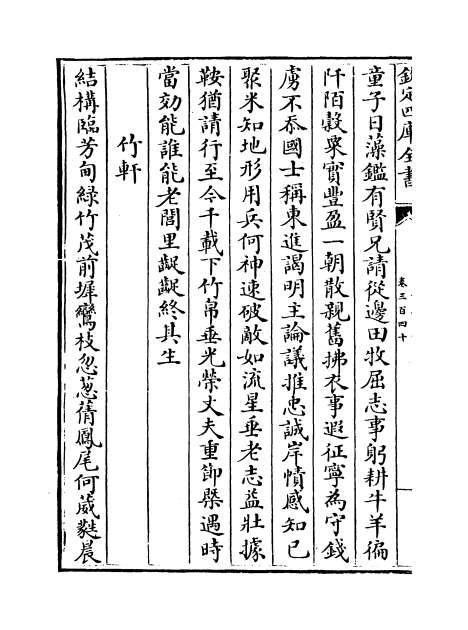 欽定四庫全書
卷三百四十
童子日藻鑑有賢兄請從邊田牧屈志事躬耕牛羊徧
阡陌穀粟實豐盈一朝散親舊拂衣事遐征寧為守錢
虜不忝國士稱東進謁明主論議推忠誠岸幘感知已
聚米知地形用兵何神速破敵如流星垂老志益壯據
鞍猶請行至今千載下竹帛垂光榮丈夫重節槩遇時
當効能誰能老閭里齪齪終其生
竹軒
結構臨芳甸緑竹茂前墀鸞枝忽葱蒨鳳尾何葳蕤晨